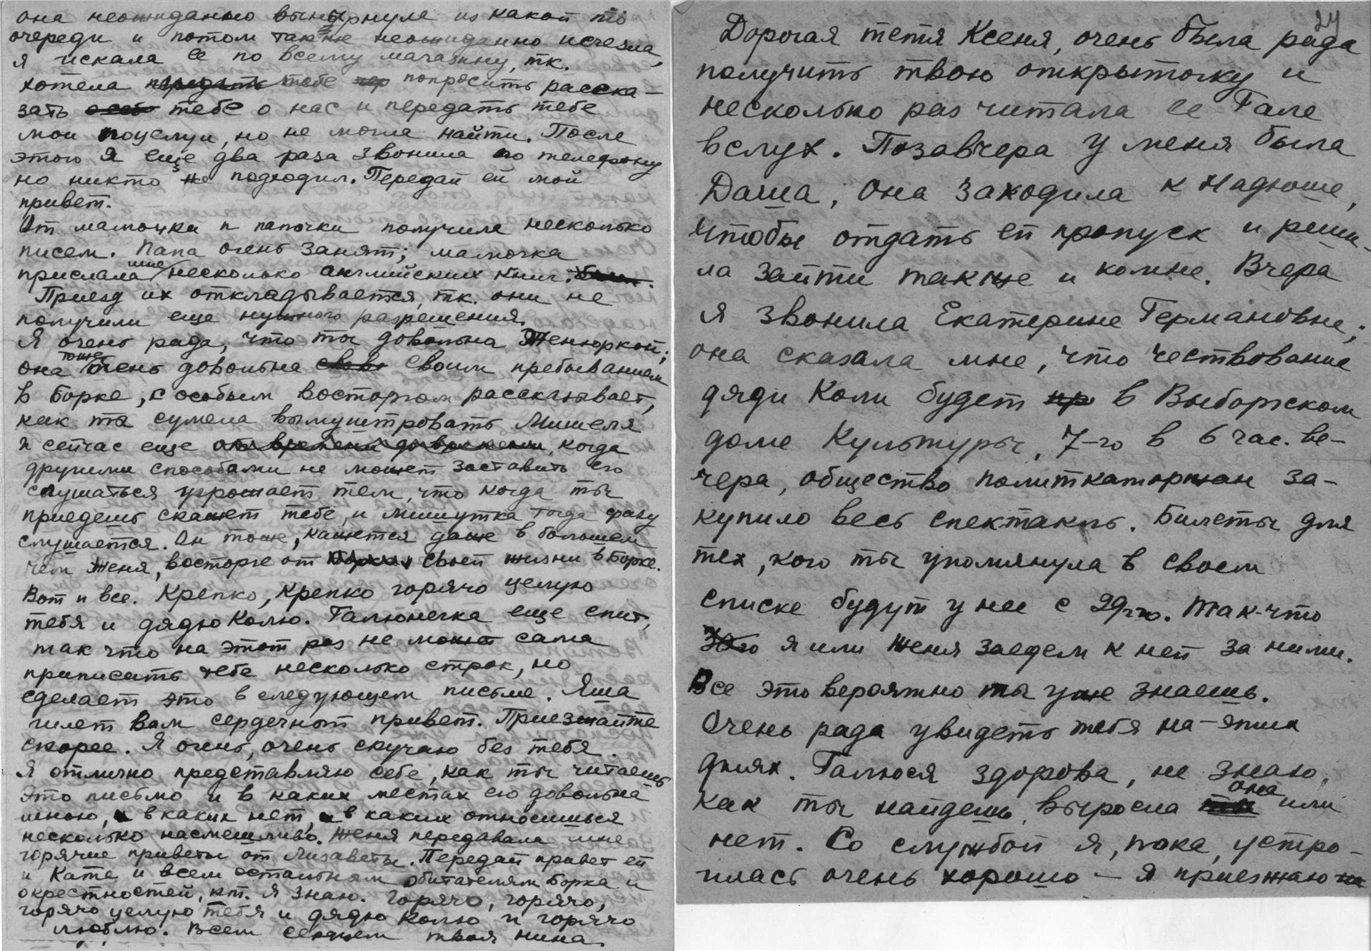 она неожиданно вынырнула из какой то
очереди и потом также неожиданно исчезла,
я искала ее по всему магазину, тк.
хотела передать тебе попросить расска-
зать тебе о нас и передать тебе
мои поцелуи, но не могла найти. После
этого я еще два раза звонила по телефону
но никто не подходил. Передай ей мой
привет.
От мамочки и папочки получила несколько
писем. Папа очень занят; мамочка
прислала мне несколько английских книг.
Приезд их откладывается, тк. они не
получили еще нужного разрешения.
Я очень рада, что ты довольна Женюркой;
она тоже очень довольна своим пребыванием
в Борке, с особым восторгом рассказывает,
как ты сумела вымуштровать Мишеля
и сейчас еще когда
другими способами не может заставить его
слушаться угрожает тем, что когда ты
приедешь скажет тебе, и Мишутка тогда сразу
слушается. Он тоже, кажется даже в большем
чем Женя, восторге от своей жизни в Борке.
Вот и все. Крепко, крепко горячо целую
тебя и дядю Колю. Галюнечка еще спит,
так что на этот раз не может сама
приписать тебе несколько строк, но
сделает это в следующем письме. Яша
шлет вам сердечный привет. Приезжайте
скорее. Я очень, очень скучаю без тебя.
Я отлично представляю себе, как ты читаешь
это письмо и в каких местах его довольна
мною, в каких нет, в каким относишься
несколько насмешливо. Женя передавала мне
горячие приветы от Лизаветы. Передай привет ей
и Кате и всем остальным обитателям Борка и
окрестностей, кт. я знаю. Горячо, горячо,
горячо целую тебя и дядю Колю и горячо
люблю. Всем сердцем твоя Нина.
24
Дорогая тетя Ксеня, очень была рада
получить твою открыточку и
несколько раз читала ее Гале
вслух. Позавчера у меня была
Даша, она заходила к Надюше,
чтобы отдать ей пропуск и реши-
ла зайти также и комне. Вчера
я звонила Екатерине Германовне;
она сказала мне, что чествование
дяди Коли будет в Выборжском
доме Культуры, 7-го в 6 час. ве-
чера, общество политкаторжан за-
купило весь спектакль. Билеты для
тех, кого ты упомянула в своем
списке будут у нее с 29го. Так-что
я или Женя заедем к ней за ними.
Все это вероятно ты уже знаешь.
Очень рада увидеть тебя на-этих
днях. Галюся здорова, не знаю,
как ты найдешь, выросла она или
нет. Со службой я, пока, устро-
илась очень хорошо – я приезжаю на